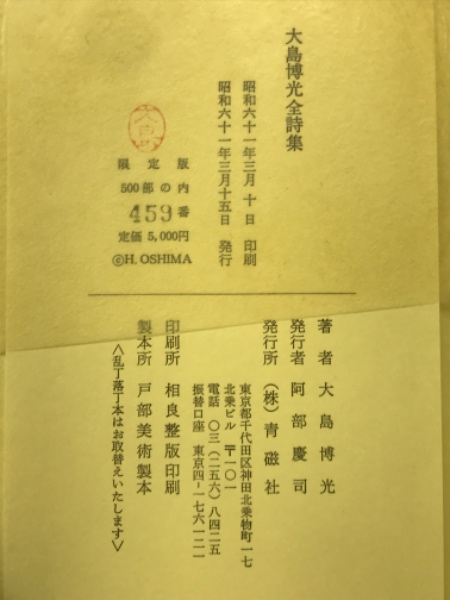 大島博光全詩集
昭和六十一年三月 十日 印刷
昭和六十一年三月十五日 発行
限定版
500部の内
459番
定価 5,000円
©H. OSHIMA
著者 大島博光
発行者 阿部慶司
発行所 (株)青磁社
東京都千代田区神田北乗物町一七
北乗ビル 〒一〇一
電話 〇三(二五六)八四二五
振替口座 東京四-一七六一二一
印刷所 相良整版印刷
製本所 戸部美術製本
〈乱丁落丁本はお取替えいたします〉